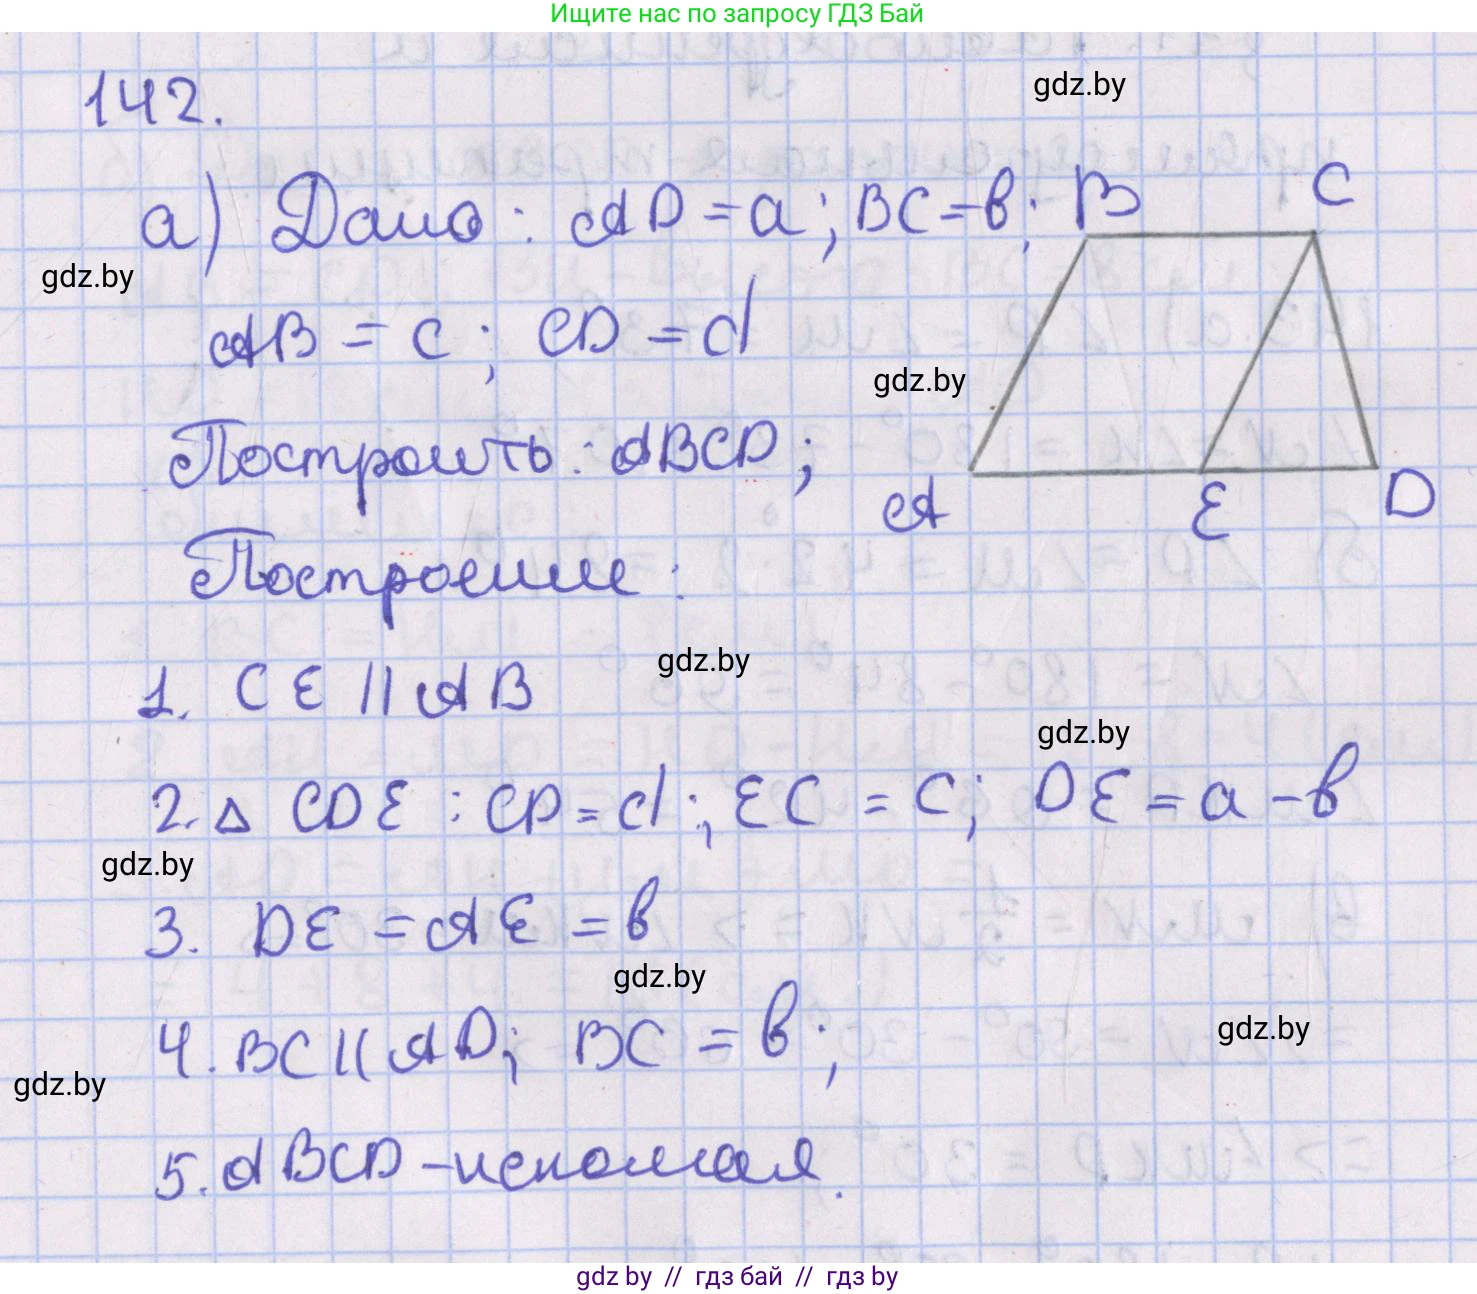 Ищите нас по запросу ГДЗ Бай
142.
gdz.by
а) Дано: AD = a; BC = b; B C
gdz.by
AB = c; CD = d
gdz.by
Построить: ABCD;
A E D
Построение:
gdz.by
1. CE || AB
gdz.by
2. Δ CDE: CD = d; EC = c; DE = a - b
gdz.by
3. DE = AE = b
gdz.by
4. BC || AD; BC = b;
gdz.by
gdz.by
5. ABCD - искомая.
gdz by // гдз бай // гдз by